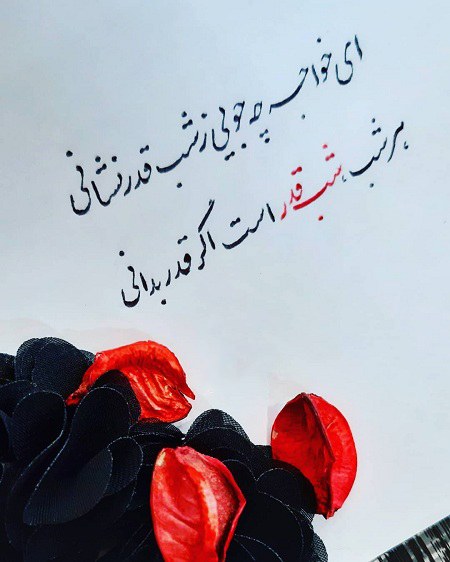 ای خواجه چه جویی ز شب قدر نشانی
هر شب، شب قدر است اگر قدر بدانی